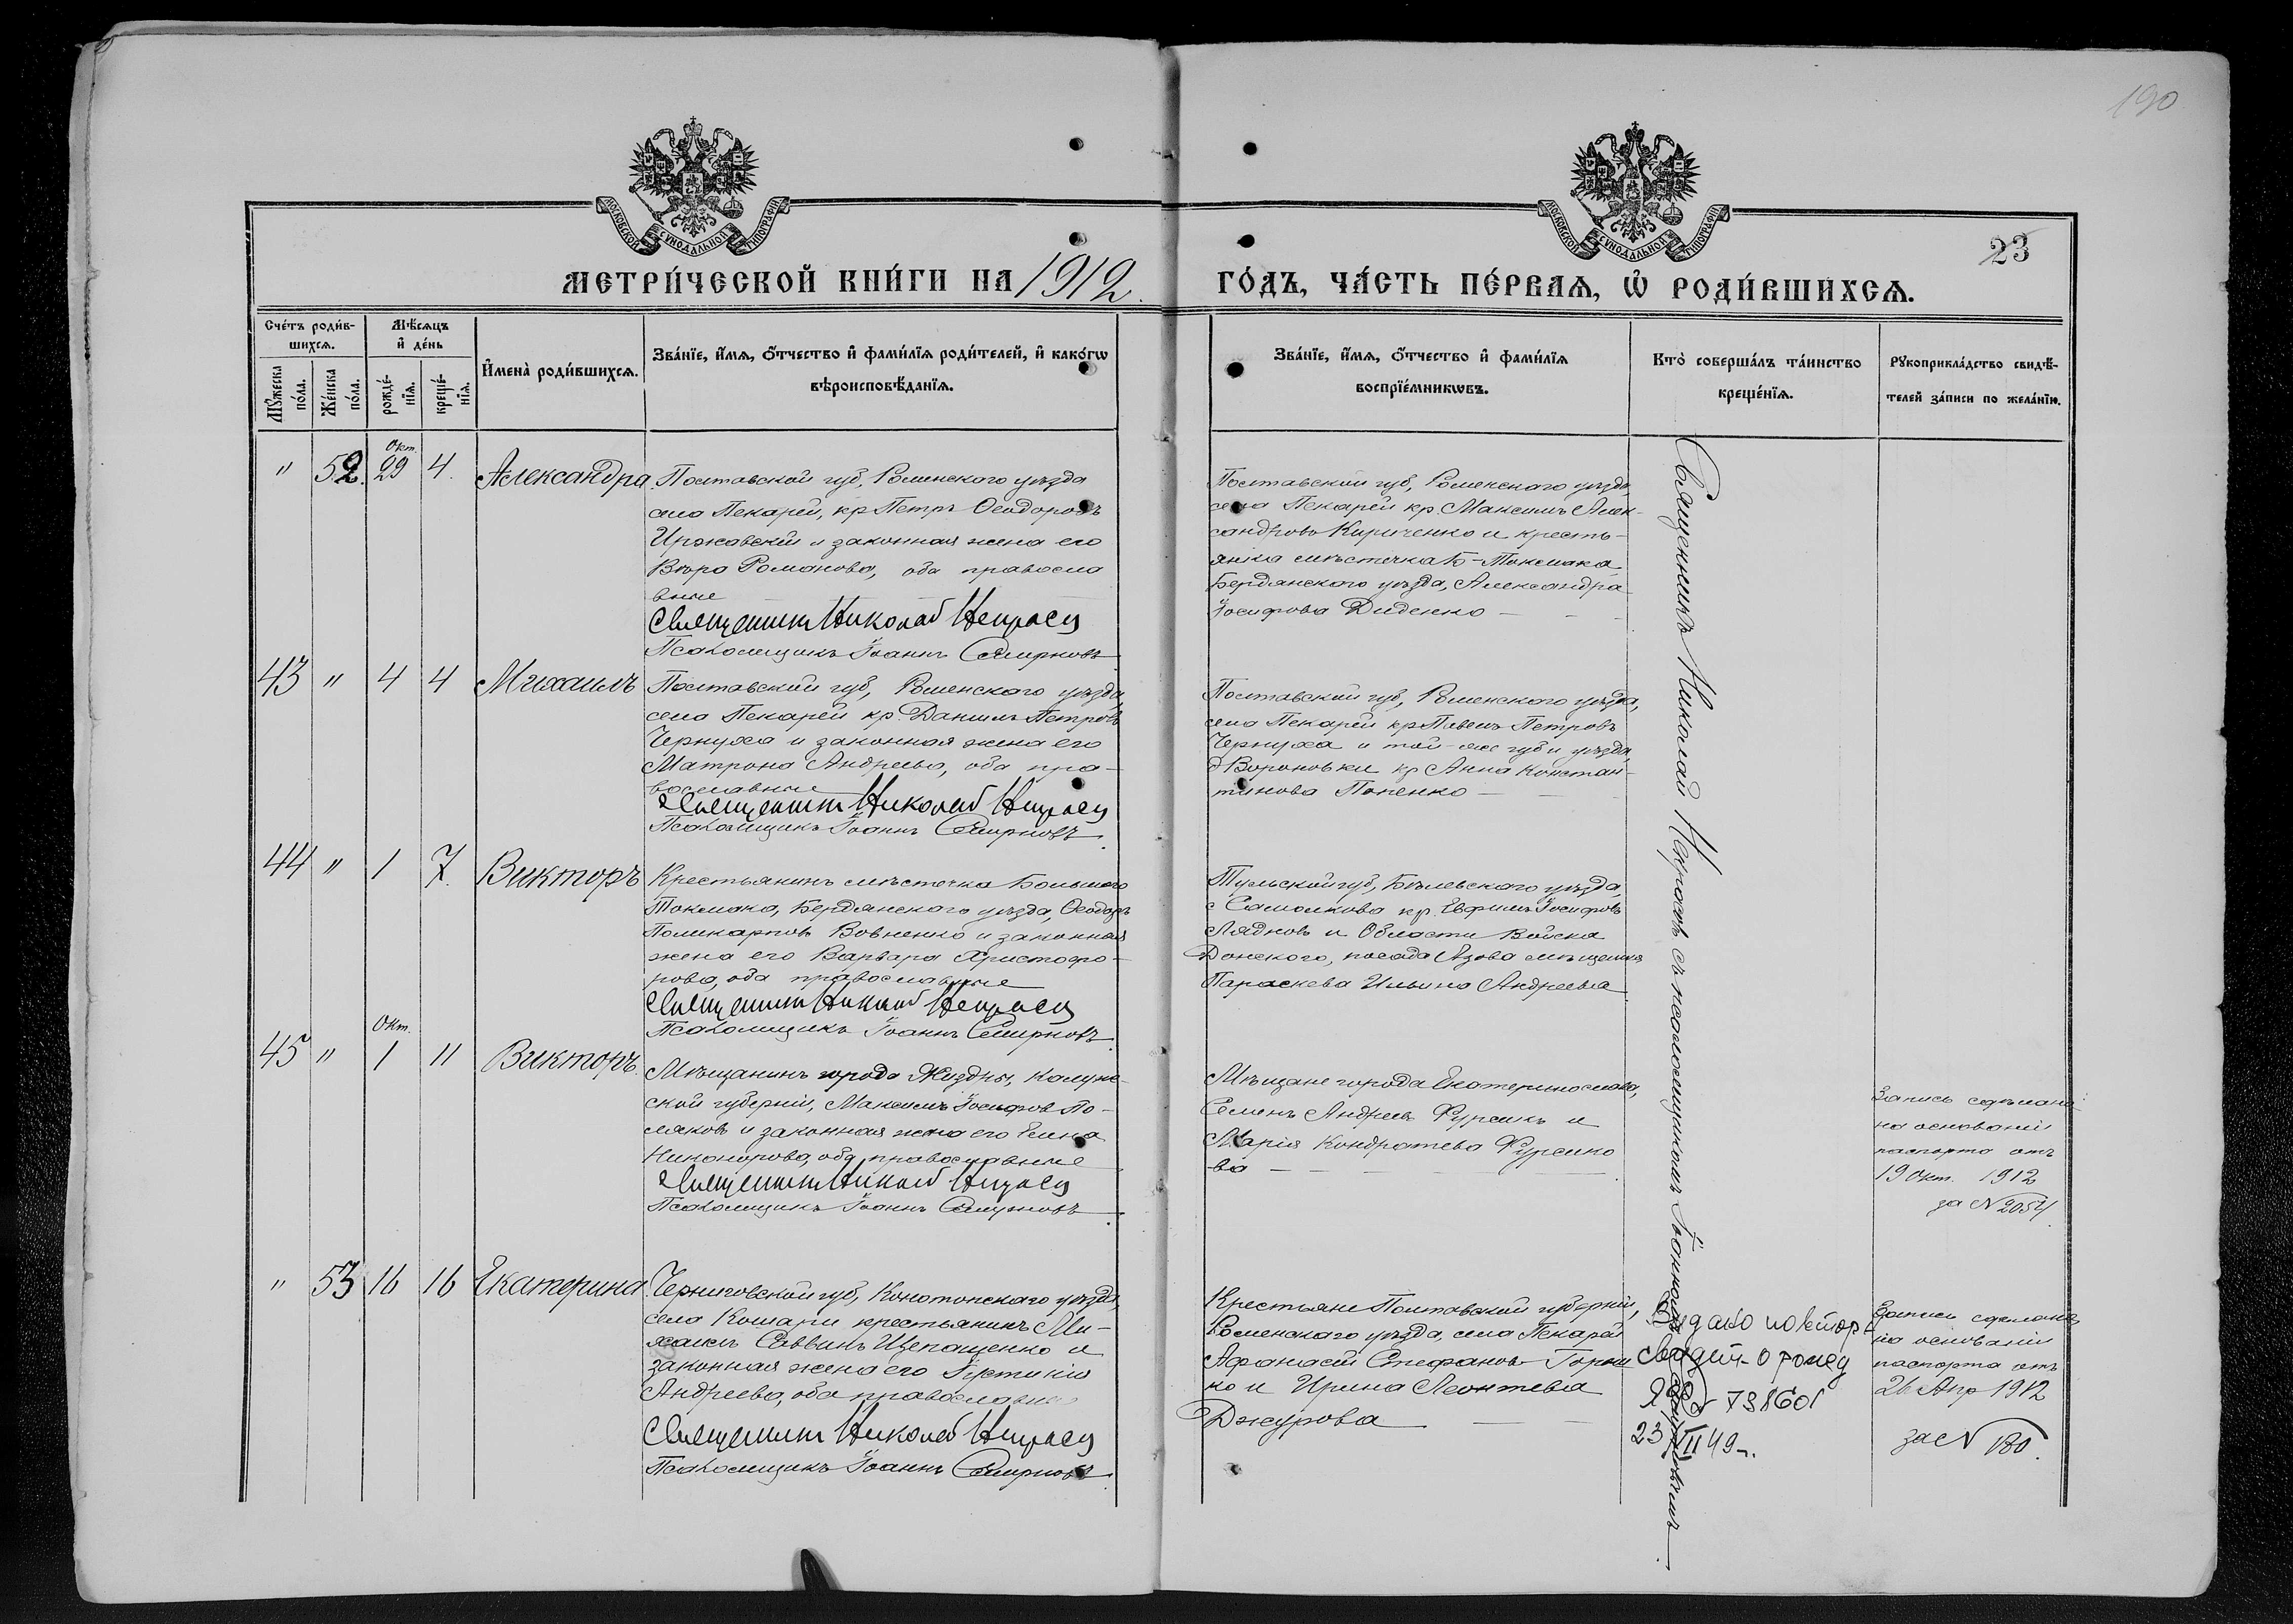 190
МОСКОВСКОЙ СѴНОДАЛЬНОЙ ТИПОГРАФІИ
МОСКОВСКОЙ СѴНОДАЛЬНОЙ ТИПОГРАФІИ
23
МЕТРИ́ЧЕСКОЙ КНИ́ГИ НА 1912 ГО́ДЪ, ЧА́СТЬ ПЕ́РВАѦ, Ѡ҆ РОДИ́ВШИХСѦ.
Сче́тъ роди́в-
шихсѧ.
Мꙋ́жеска
по́ла.
Же́нска
по́ла.
Мѣ́сѧцъ
и҆ де́нь
рожде́-
нїѧ.
креще́-
нїѧ.
И҆мена̀ роди́вшихсѧ.
Зва́нїе, и҆́мѧ, ѻ҆́тчество и҆ фами́лїѧ роди́телей, и҆ како́гѡ
вѣроисповѣ́данїѧ.
Зва́нїе, и҆́мѧ, ѻ҆́тчество и҆ фами́лїѧ
воспрїе́мникѡвъ.
Кто̀ соверша́лъ та́инство
креще́нїѧ.
Рꙋкоприкла́дство свидѣ́-
телей за́писи по жела́нїю.
" 52. Окт. 29 4. Александра
Полтавской губ, Роменского уѣзда
села Пекарей, кр Петръ Ѳеодоровъ
Иржавскій и законная жена его
Вѣра Романова, оба правосла
вные
Священникъ Николай Некрасъ
Псаломщикъ Іоаннъ Смирновъ
Полтавской губ, Роменскаго уѣзда
села Пекарей кр. Максимъ Алек-
сандровъ Кириченко и кресть-
янка мѣстечка Б-Токмака
Бердянского уѣзда, Александра
Іосифова Диденко
43 " 4 4 Михаилъ
Полтавской губ, Роменского уѣзда
села Пекарей кр. Даниилъ Петровъ
Чернуха и законная жена его
Матрона Андреева, оба пра-
вославные
Священникъ Николай Некрасъ
Псаломщикъ Іоаннъ Смирновъ
Полтавской губ, Роменского уѣзда,
села Пекарей кр Павелъ Петровъ
Чернуха и той-же губ и уѣзда,
д Вороновки кр Анна Констан-
тинова Попенко
44 " 1 7. Викторъ
Крестьянинъ мѣстечка Большого
Токмака, Бердянского уѣзда, Ѳеодоръ
Поликарповъ Вовненко и законная
жена его Варвара Христофо-
рова, оба православные
Священникъ Николай Некрасъ
Псаломщикъ Іоаннъ Смирновъ
Тульской губ, Бѣлевского уѣзда,
с Самолкова кр. Евфимъ Іосифовъ
Лядновъ и Области Войска
Донского, посада Азова мѣщанка
Параскева Ильина Андреева
45 " Окт. 1 11 Викторъ.
Мѣщанинъ города Жиздры, Калуж-
ской губерніи, Максимъ Іосифовъ По-
ляковъ и законная жена его Елена
Никонорова, оба православные
Священникъ Николай Некрасъ
Псаломщикъ Іоаннъ Смирновъ
Мѣщане города Екатеринослава,
Семенъ Андреевъ Фурсикъ и
Марія Кондратева Фурсико
ва
Запись сдѣлана
на основаніи
паспорта отъ
19 Окт. 1912
за № 2054
" 53 16 16 Екатерина
Черниговской губ, Конотопского уѣзда,
села Кошары крестьянинъ Ми-
хаилъ Саввинъ Щепащенко и
законная жена его Іустинія
Андреева, оба православные
Священникъ Николай Некрасъ
Псаломщикъ Іоаннъ Смирновъ
Крестьяне Полтавской губерніи,
Роменского уѣзда, села Пекарей
Афанасій Стефановъ Горош
ко и Ирина Леонтева
Джурова
Священникъ Николай Некрасъ съ псаломщикомъ Іоанномъ Смирновымъ
Видано повтор-
свидет- о рожд
73860
23/VII 49
Запись сдѣлана
на основаніи
паспорта отъ
26 Апр 1912
за № 180.